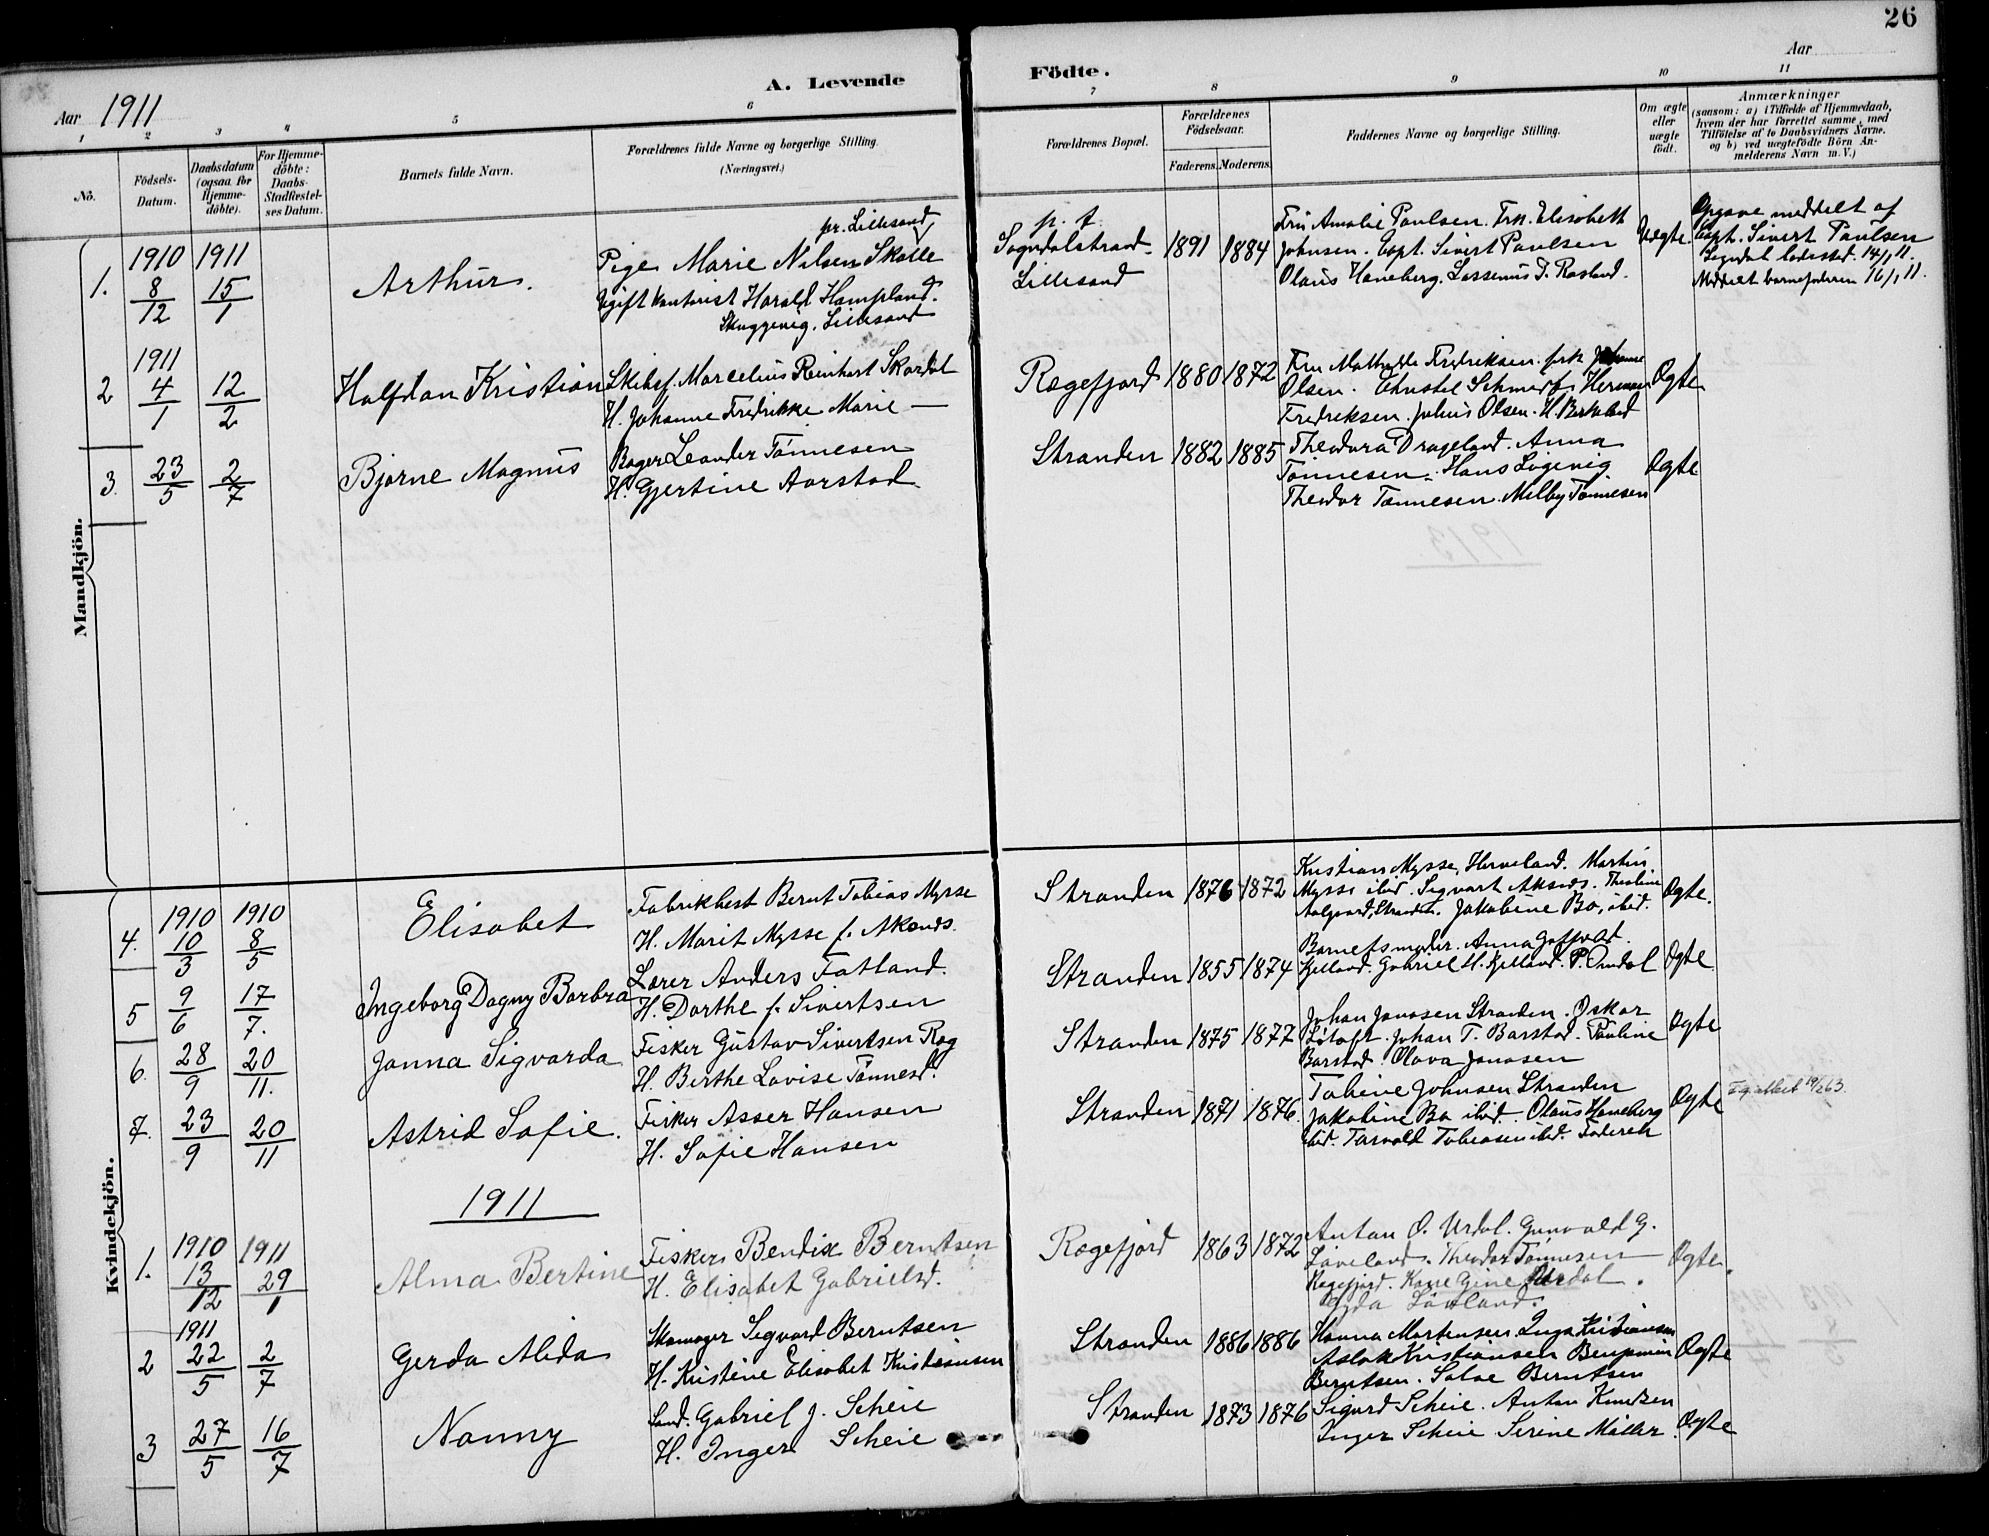 26
A. Levende Födte.
Aar 1911
Aar
1 2 3 4 5 6 7 8 9 10 11
No.
Födsels-Datum.
Daabsdatum (ogsaa for Hjemme-döbte).
For Hjemme-döbte: Daabs-Stadfæstel-ses Datum.
Barnets fulde Navn.
Forældrenes fulde Navne og borgerlige Stilling.
(Næringsvei.)
Forældrenes Bopæl.
Forældrenes Födselsaar.
Faderens. Moderens.
Faddernes Navne og borgerlige Stilling.
Om ægte eller uægte födt.
Anmærkninger
(saasom: a) i Tilfælde af Hjemmedaab,
hvem der har forrettet samme, med
Tilföielse af to Daabsvidners Navne.
og b) ved uægtefödte Börn An-
melderens Navn m. V.)
Mandkjön.
1. 1910 8/12 1911 15/1
Arthur.
pr. Lillesand,
Pige Marie Nilsen Skalle
Ugift Kontorist Harald Hampland.
Skuggevig. Lillesand
p. t.
Sogndalstrand
Lillesand
1891 1884
Fru Amalie Paulsen. Frk. Elisabeth
Johnsen. Capt. Sivert Paulsen
Olaus Haneberg. Lassenius T. Rosland.
Uægte.
Opgave meddelt af
Capt. Sivert Paulsen
Sogndal ladested. 14/1 11.
Meddelt barnefaderen 16/1 11.
2 1911 4/1 12/2
Halfdan Kristian
Skibsf. Marcelius Reinhart Skardal
H. Johanne Fredrikke Marie —
Rægefjord 1880 1872
Fru Mathilde Fredriksen. frk Johanne
Olsen. Christel Herman
Fredriksen. Julius Olsen. H. Berkeland
Ægte
3. 23/5 2/7
Bjarne Magnus
Bager Leander Tönnesen
H. Gjertine Aarstad
Stranden 1882 1885
Theodora Drageland. Anna
Tönnesen. Hans Lögevig
Theodor Tönnesen. Milby Tönnesen
Ægte
Kvindekjön.
4. 1910 10/3 1910 8/5
Elisabet
Fabrikbest Bernt Tobias Mysse
H. Marit Mysse f. Akends.
Stranden 1876 1872
Kristian Mysse, Herveland. Martin
Mysse ibid. Sigvart Aksnes. Theoline
Aalgaard, Stranden. Jakobine Bo, ibid.
Ægte.
5 9/6 17/7.
Ingeborg Dagny Borbra
Lærer Anders Fatland.
H. Dorthe f. Sivertsen
Stranden 1855 1874
Barnets moder. Anna
Kjelland. Gabriel H. Kjelland. P. Omdal
Ægte
6. 28/9 20/11.
Janna Sigvarda
Fisker Gustav Sivertsen Rag
H. Berthe Lovise Tönnesd.
Stranden 1875 1877
Johan Jonasen Stranden. Oskar
Løtoft. Johan T. Barstad. Pauline
Barstad. Olava Jonasen
Ægte
7. 23/9 20/11
Astrid Sofie.
Fisker Asser Hansen
H. Sofie Hansen
Stranden 1871 1876.
Tobine Johnsen Stranden
Jakobine Bo ibid. Olaus Haneberg
ibid. Tarvald Tobiasen ibid. Faderen
Ægte
1911
1. 1910 13/12 1911 29/1
Alma Bertine
Fisker Bendix Berntsen
H. Elisabet Gabrielsd.
Rægefjord 1863 1872
Anton O. Urdal. Gunvald G.
Løveland. Theodor Tönnesen
Rægefjord. Karre Gine Urdal.
Løvland.
Ægte.
2 1911 22/5 2/7
Gerda Alida
Skomager Sigvard Berntsen
H. Kristine Elisabet Kristiansen
Stranden 1886 1886
Hanna Martensen Inga Kristiansen
Aslak Kristiansen Benjamin
Berntsen. Salve Berntsen
Ægte
3 27/5 16/7
Nanny
Land. Gabriel J. Scheie
H. Inger Scheie
Stranden 1873 1876
Sigurd Scheie. Anton Knudsen
Inger Scheie Serine Möller.
Ægte